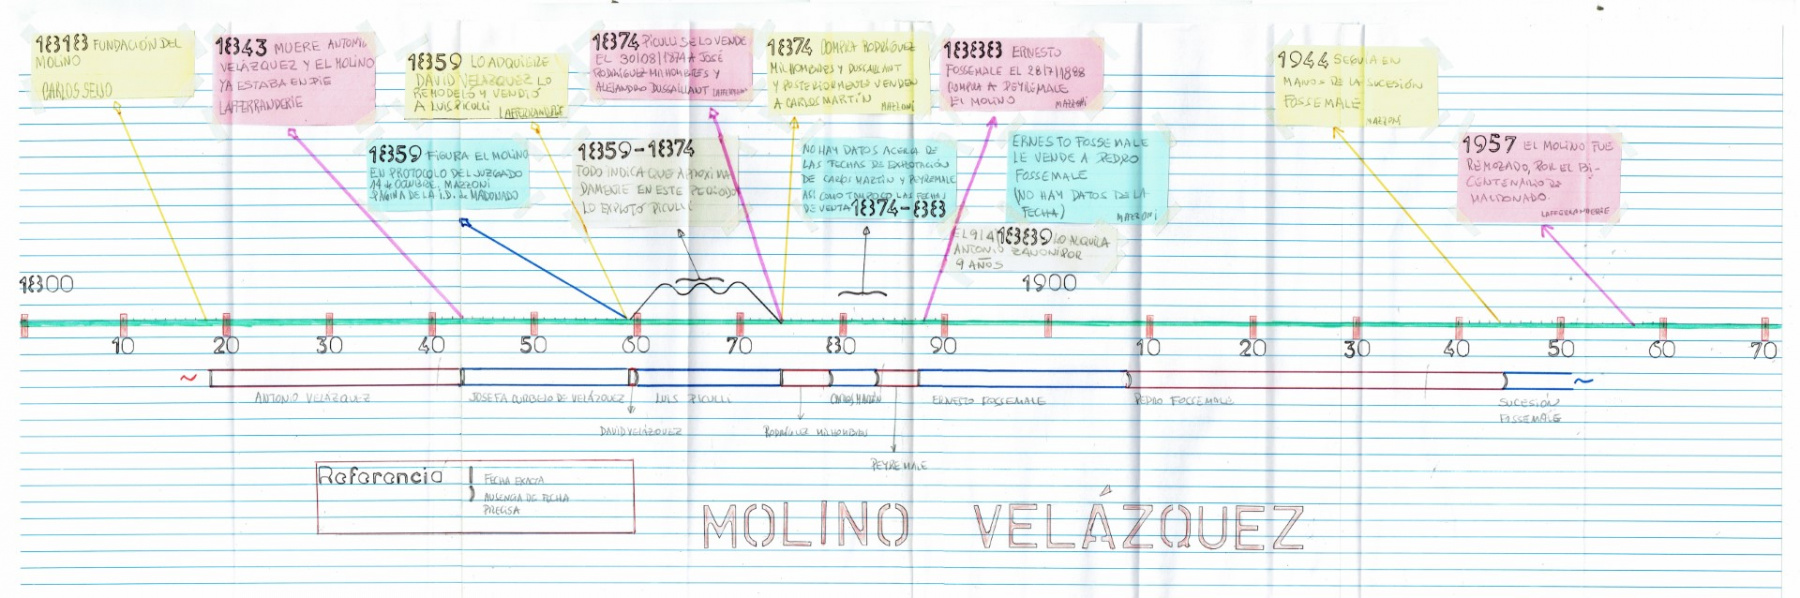 1818 FUNDACIÓN DEL
MOLINO
CARLOS SEIJO
1843 MUERE ANTONIO
VELÁZQUEZ Y EL MOLINO
YA ESTABA EN PIE
LAFFERRANDERIE
1859 LO ADQUIERE
DAVID VELAZQUEZ LO
REMODELÓ Y VENDIÓ
A LUIS PICULLI
LAFFERRANDERIE
1859 FIGURA EL MOLINO
EN PROTOCOLO DEL JUZGADO
14 de OCTUBRE. MAZZONI
PÁGINA DE LA I.D. de MALDONADO
1874 PICULLI SE LO VENDE
EL 30/08/1874 A JOSÉ
RODRÍGUEZ MILHOMBRES Y
ALEJANDRO DUSSALLANT
1859-1874
TODO INDICA QUE APROXIMA
DAMENTE EN ESTE PERÍODO
LO EXPLOTÓ PICULLI
1874 COMPRA RODRÍGUEZ
MILHOMBRES Y DUSSALLANT
Y POSTERIORMENTE VENDEN
A CARLOS MARTÍN MAZZONI
NO HAY DATOS ACERCA DE
LAS FECHAS DE EXPLOTACIÓN
DE CARLOS MARTÍN Y PEYREMALE
ASÍ COMO TAMPOCO LAS FECHAS
DE VENTA 1874-888
1888 ERNESTO
FOSSEMALE EL 28/7/1888
COMPRA A PEYREMALE
EL MOLINO MAZZONI
ERNESTO FOSSEMALE
LE VENDE A PEDRO
FOSSEMALE
(NO HAY DATOS DE LA
FECHA) MAZZONI
EL 9/4/1889 LO ALQUILA
ANTONIO ZANONI POR
9 AÑOS
1944 SEGUIA EN
MANOS DE LA SUCESIÓN
FOSSEMALE
MAZZONI
1957 EL MOLINO FUE
REMOZADO, POR EL BI-
CENTENARIO DE
MALDONADO.
LAFFERRANDERIE
1800
1900
10 20 30 40 50 60 70 80 90 10 20 30 40 50 60 70
~ ~
ANTONIO VELAZQUEZ
JOSEFA CURBELO DE VELÁZQUEZ
LUIS PICULLI
CARLOS MARTÍN
ERNESTO FOSSEMALE
PEDRO FOSSEMALE
SUCESIÓN
FOSSEMALE
DAVID VELÁZQUEZ
RODRÍGUEZ MILHOMBRES
PEYREMALE
Referencia
FECHA EXACTA
AUSENCIA DE FECHA
PRECISA
MOLINO VELÁZQUEZ